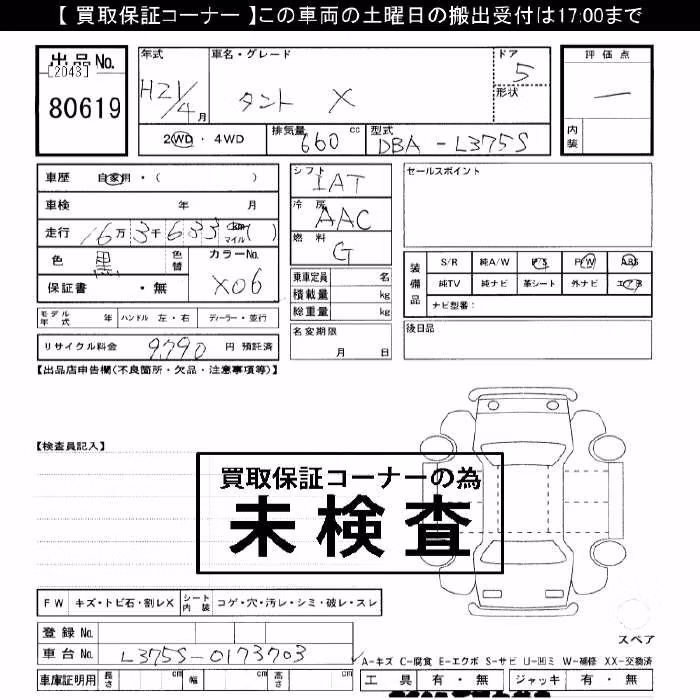 【 買取保証コーナー 】この車両の土曜日の搬出受付は17:00まで
出品No.
[2043]
80619
年式
H21/4月
車名・グレード
タント X
ドア
5
形状
評価点
一
内装
2WD・4WD
排気量
660 cc
型式
DBA-L375S
車歴 自家用・( )
車検 年 月
走行 16万3千633 km マイル ( )
色 黒 色替
カラーNo.
X06
保証書 ・無
モデル年式 年 ハンドル 左・右 ディーラー・並行
リサイクル料金 9,790 円 預託済
シフト
IAT
冷房
AAC
燃料
G
乗車定員 名
積載量 kg
総重量 kg
名変期限
月 日
セールスポイント
装備品
S/R 純A/W P/S P/W ABS
純TV 純ナビ 革シート 外ナビ エアB
ナビ型番:
後日品
【出品店申告欄(不良箇所・欠品・注意事項等)】
【検査員記入】
買取保証コーナーの為
未検査
FW キズ・トビ石・割レX シート内装 コゲ・穴・汚レ・シミ・破レ・スレ
登録No.
車台No. L375S-0173703
車庫証明用 長さ cm 幅 cm 高さ cm
スペア
A-キズ C-腐食 E-エクボ S-サビ U-凹ミ W-補修 XX-交換済
工具 有・無 ジャッキ 有・無